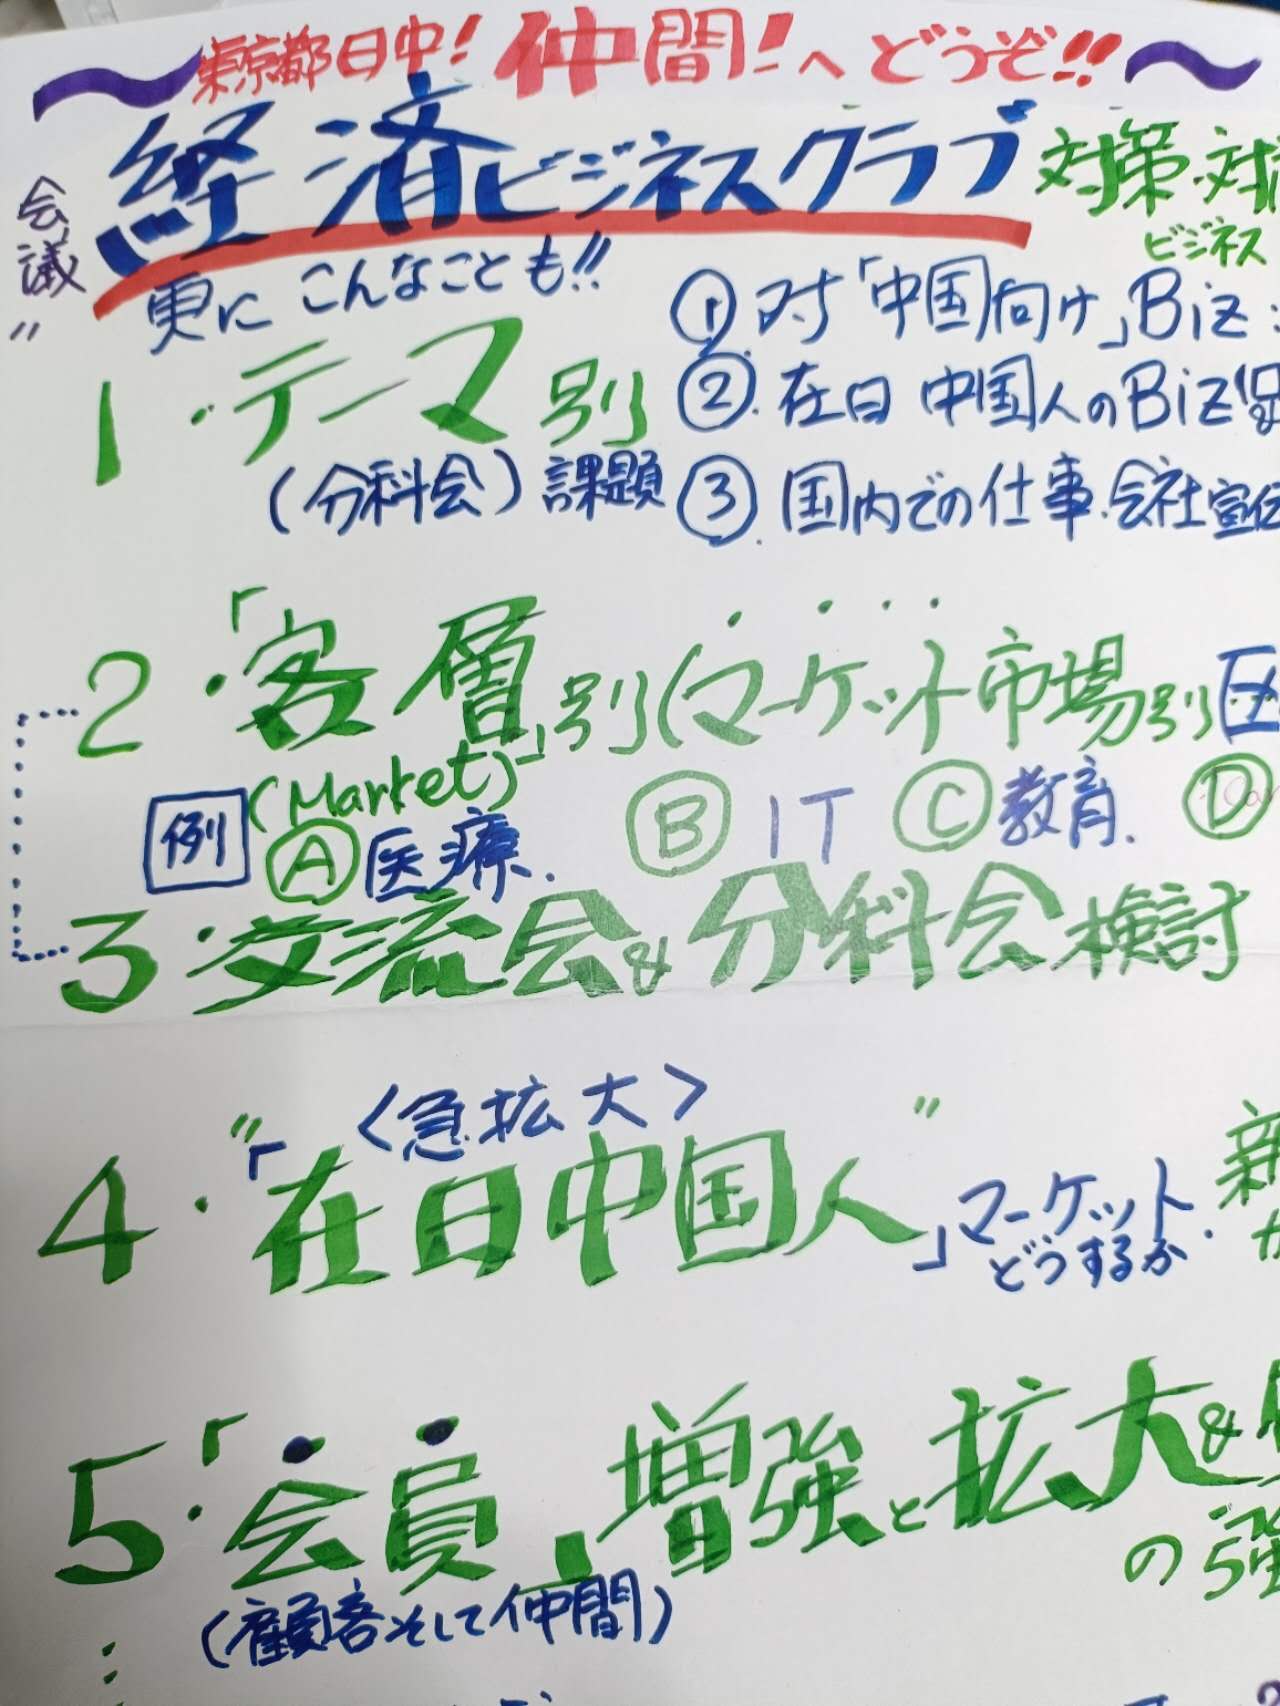 〜東京都日中!仲間!へどうぞ!!〜
会議〃
経済ビジネスクラブ 対策・対
ビジネス
更にこんなことも!!
1・テーマ別
(分科会)課題
①対「中国向け」Biz:
②.在日中国人のBiz
③.国内での仕事.会社宣伝
2・「客層」別(マーケット市場別
(Market)
例 Ⓐ医療. Ⓑ IT Ⓒ教育. Ⓓ
3・交流会&分科会検討
〈急拡大〉
4・"「在日中国人」"マーケットどうするか. 新
5・「会員」増強と拡大&
の強
(顧客そして仲間)